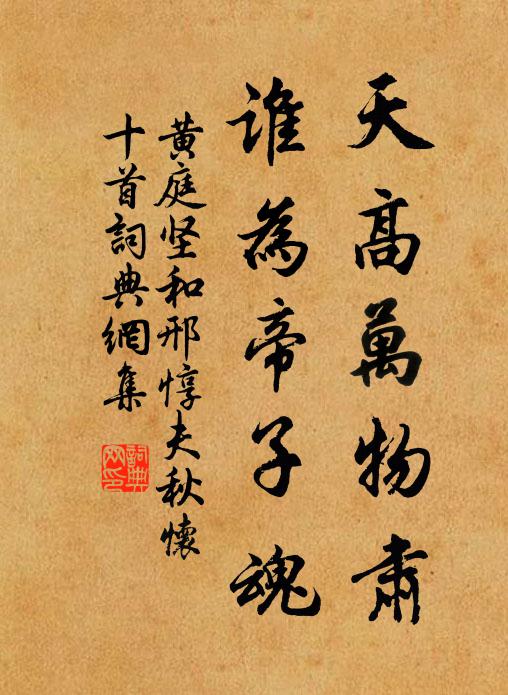 天高萬物肅
誰為帝子魂
黄庭坚和邢惇夫秋懷
十首詞典網集
詞典网印